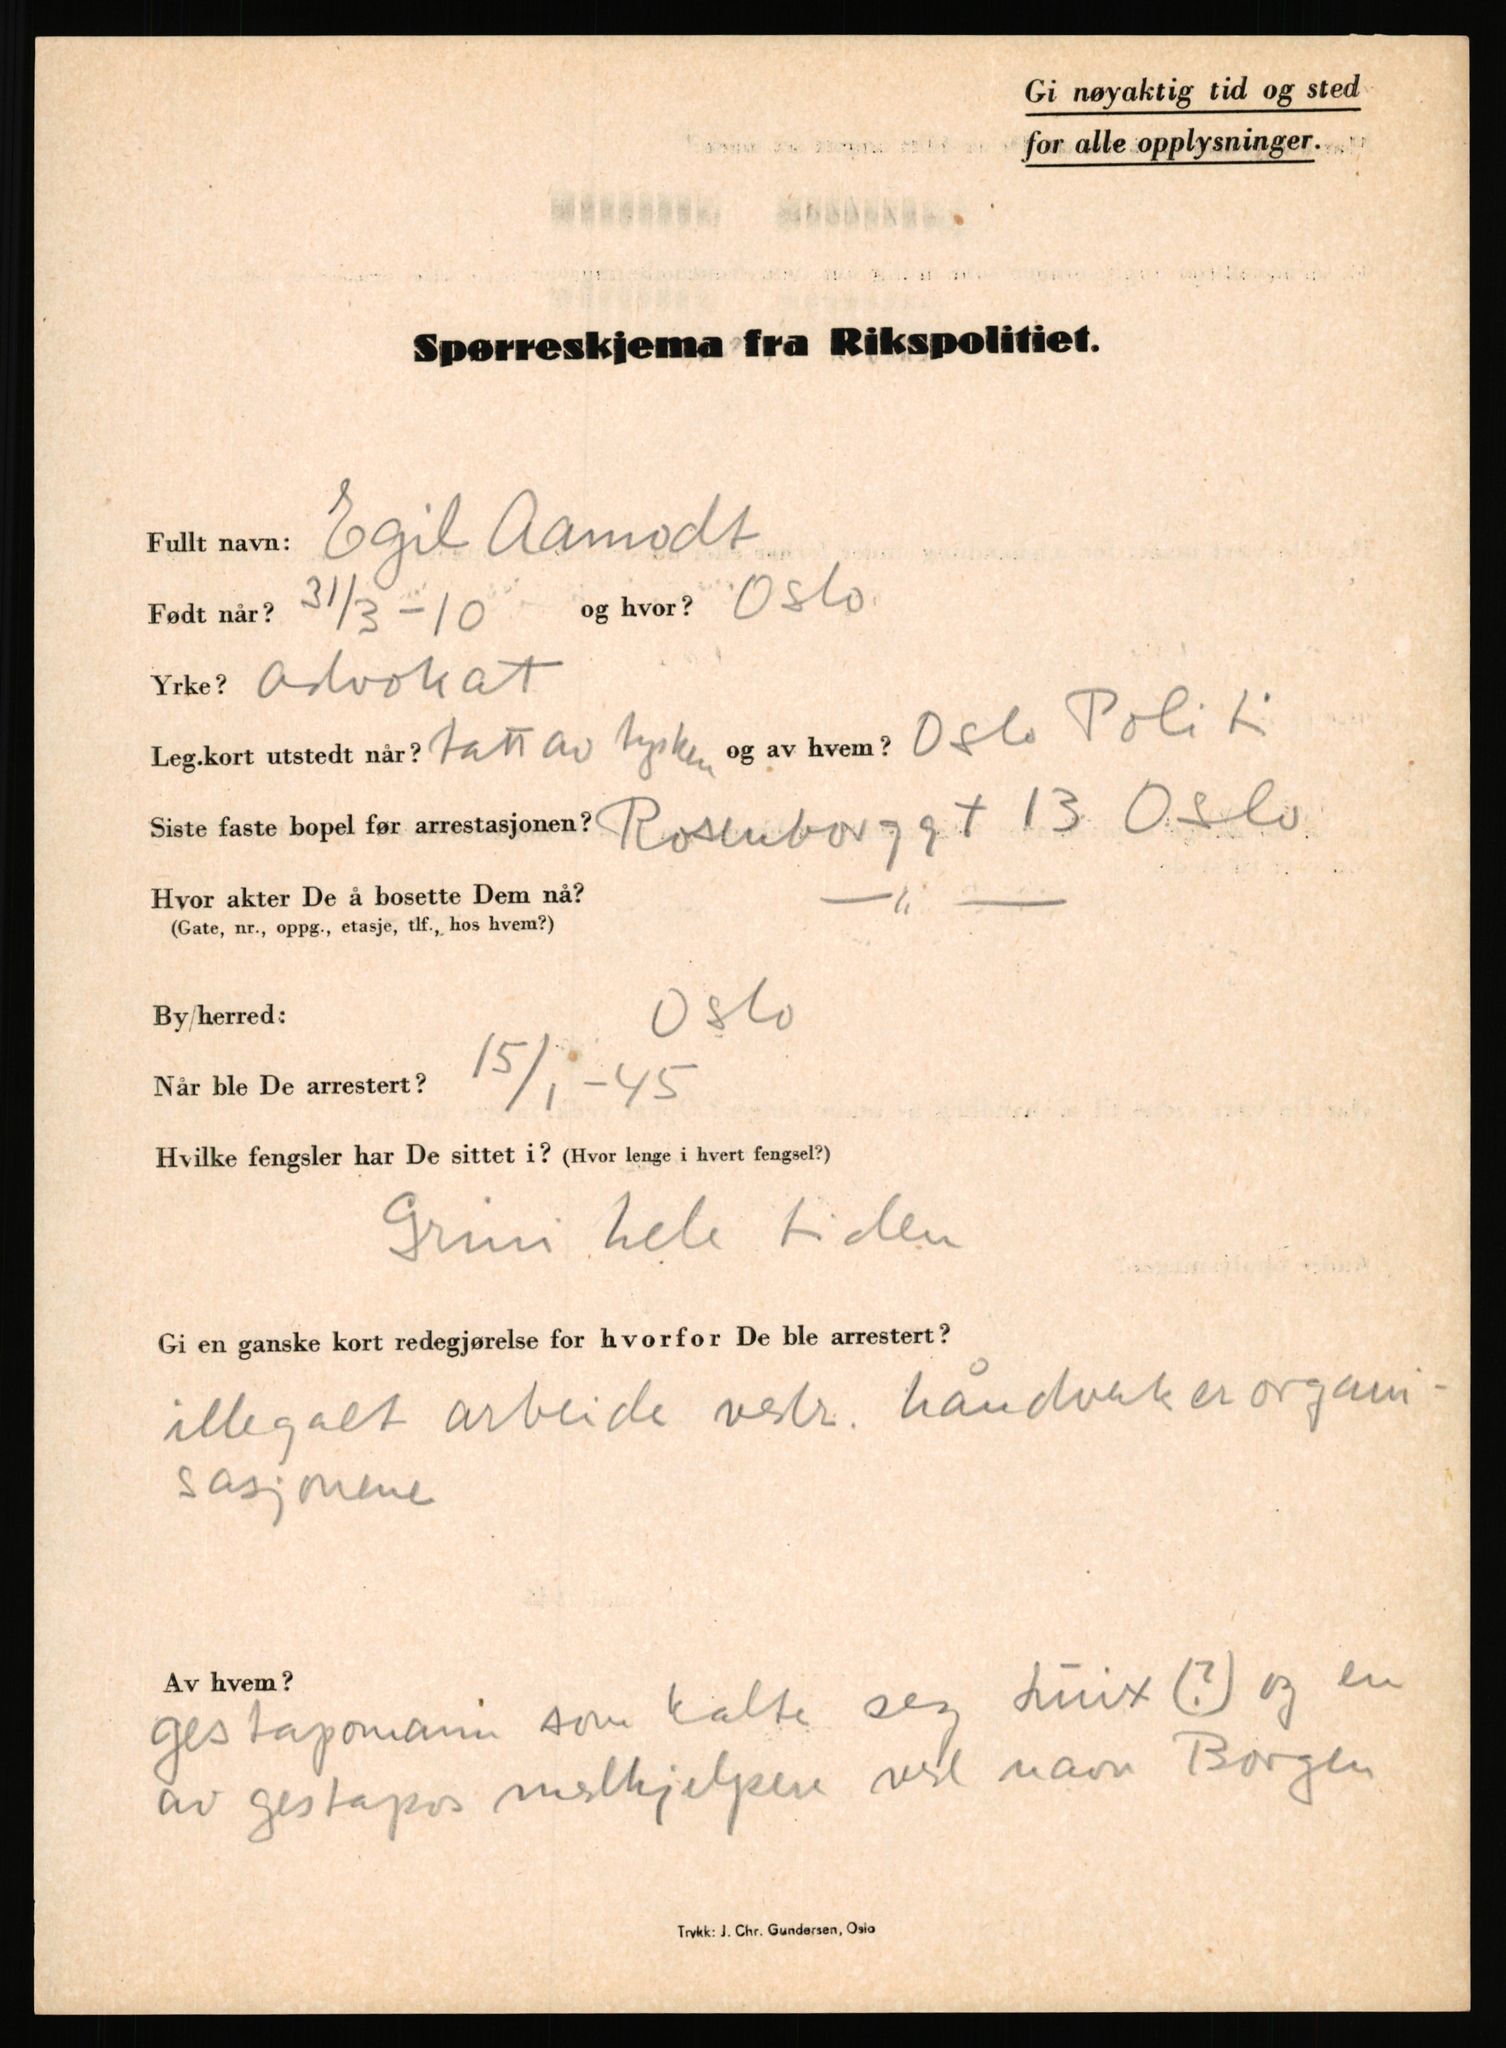 Gi nøyaktig tid og sted
for alle opplysninger.
Spørreskjema fra Rikspolitiet.
Fullt navn: Egil Aamodt
Født når? 31/3-10 og hvor? Oslo
Yrke? advokat
Leg.kort utstedt når? tatt av tysken og av hvem? Oslo Politi
Siste faste bopel før arrestasjonen? Rosenborggt 13 Oslo
Hvor akter De å bosette Dem nå? —"—
(Gate, nr., oppg., etasje, tlf., hos hvem?)
By/herred: Oslo
Når ble De arrestert? 15/1-45
Hvilke fengsler har De sittet i? (Hvor lenge i hvert fengsel?)
Grini hele tiden
Gi en ganske kort redegjørelse for hvorfor De ble arrestert?
illegalt arbeide vedr. håndverkerorgani-
sasjonene
Av hvem?
gestapomann som kalte seg (?) og en
av gestapos medhjelpere ved navn Borgen
Trykk: J. Chr. Gundersen, Oslo